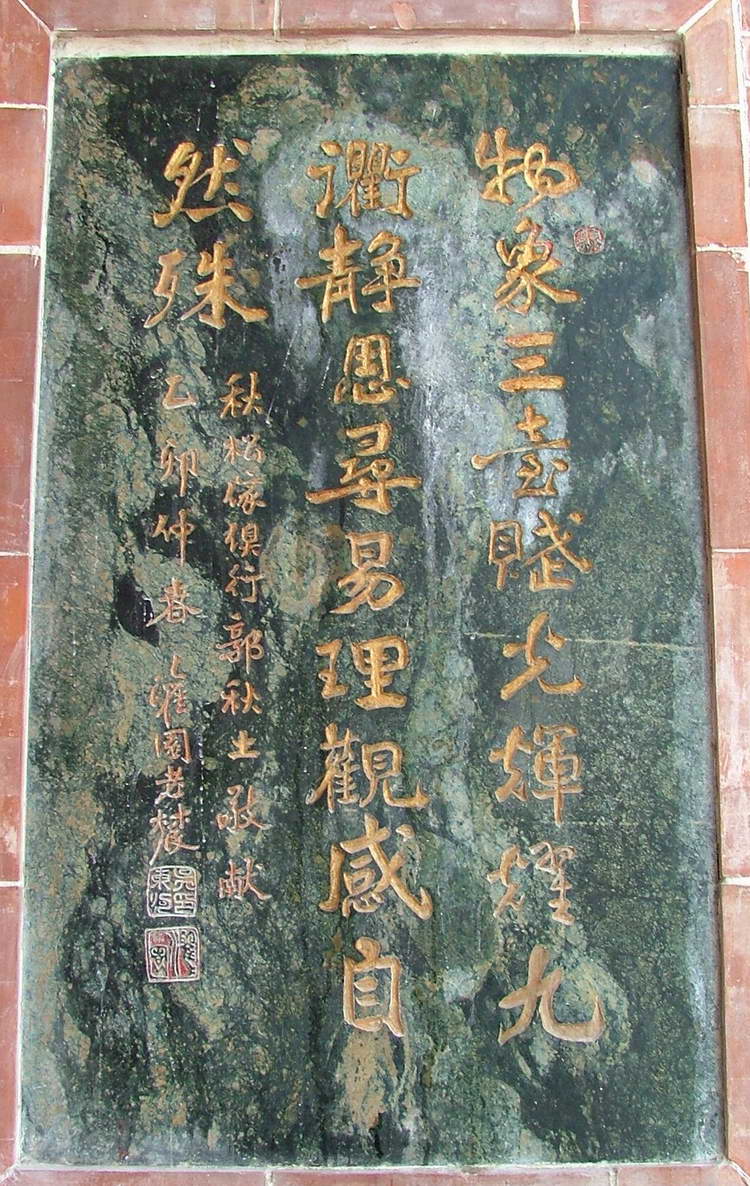 物象三臺賦光輝耀九
衢静思尋易理觀感自
然殊
秋松傢俱行郭秋土敬献
乙卯仲春 雅園老